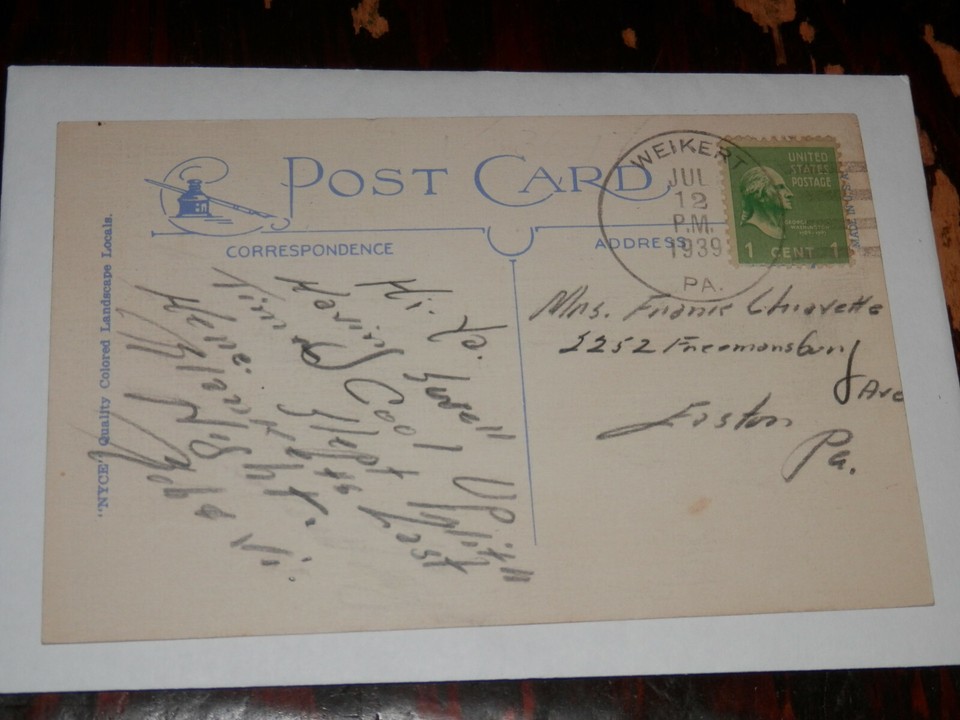 POST CARD
CORRESPONDENCE
ADDRESS
WEIKERT
JUL
12
P.M.
1939
PA.
UNITED
STATES
POSTAGE
1 CENT 1
MADE IN U.S.A.
"NYCE" Quality Colored Landscape Locals.
Mrs. Frank Chiavetta
2252 Freemansburg
Ave
Easton
Pa.
Hi. Ya. Up
Cool Last
Time & Slept
Here.
Night.